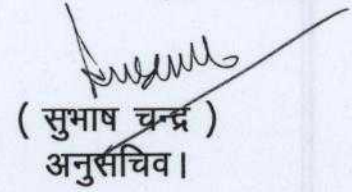 ( सुभाष चन्द्र )
अनुसचिव।